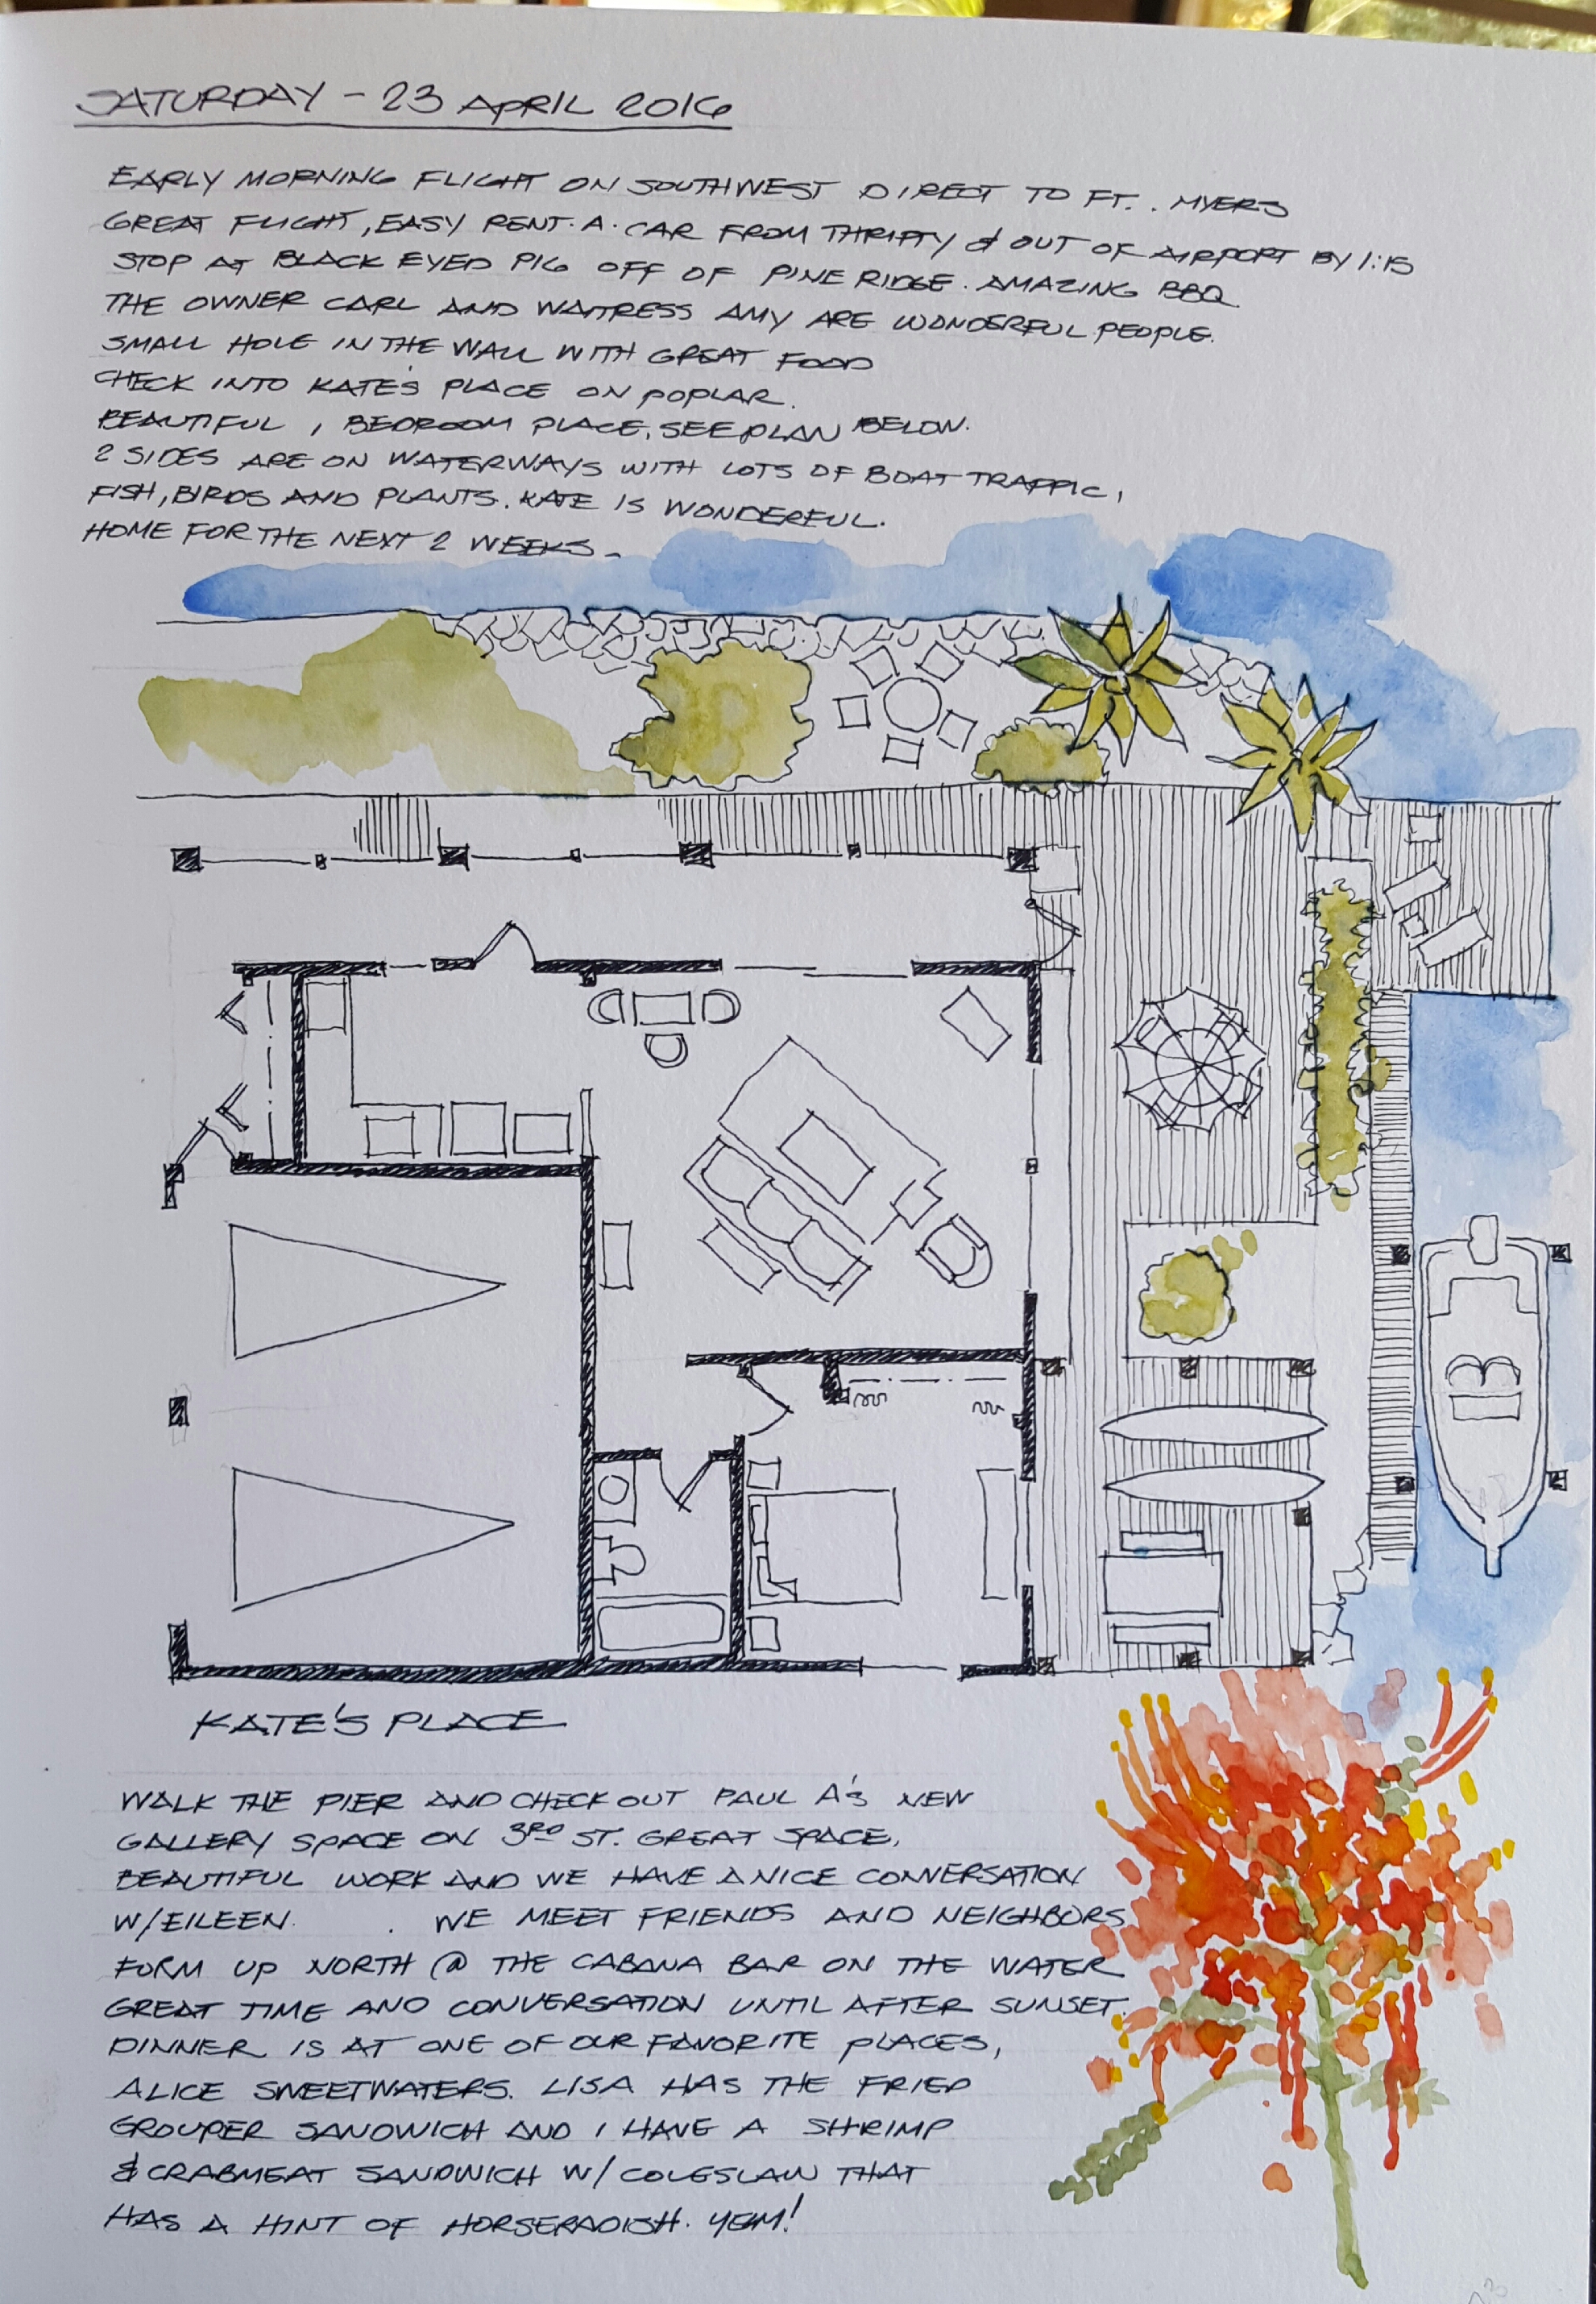 SATURDAY - 23 APRIL 2016
EARLY MORNING FLIGHT ON SOUTHWEST DIRECT TO FT. . MYERS
GREAT FLIGHT, EASY RENT. A. CAR FROM THRIFTY & OUT OF AIRPORT BY 1:15
STOP AT BLACK EYED PIG OFF OF PINE RIDGE. AMAZING BBQ
THE OWNER CARL AND WAITRESS AMY ARE WONDERFUL PEOPLE.
SMALL HOLE IN THE WALL WITH GREAT FOOD
CHECK INTO KATE'S PLACE ON POPLAR.
BEAUTIFUL 1 BEDROOM PLACE, SEE PLAN BELOW.
2 SIDES ARE ON WATERWAYS WITH LOTS OF BOAT TRAFFIC,
FISH, BIRDS AND PLANTS. KATE IS WONDERFUL.
HOME FOR THE NEXT 2 WEEKS -
KATE'S PLACE
WALK THE PIER AND CHECK OUT PAUL A'S NEW
GALLERY SPACE ON 3RD ST. GREAT SPACE,
BEAUTIFUL WORK AND WE HAVE A NICE CONVERSATION
W/EILEEN. . WE MEET FRIENDS AND NEIGHBORS
FORM UP NORTH @ THE CABANA BAR ON THE WATER
GREAT TIME AND CONVERSATION UNTIL AFTER SUNSET.
DINNER IS AT ONE OF OUR FAVORITE PLACES,
ALICE SWEETWATERS. LISA HAS THE FRIED
GROUPER SANDWICH AND I HAVE A SHRIMP
& CRABMEAT SANDWICH W/ COLESLAW THAT
HAS A HINT OF HORSERADISH. YEM!